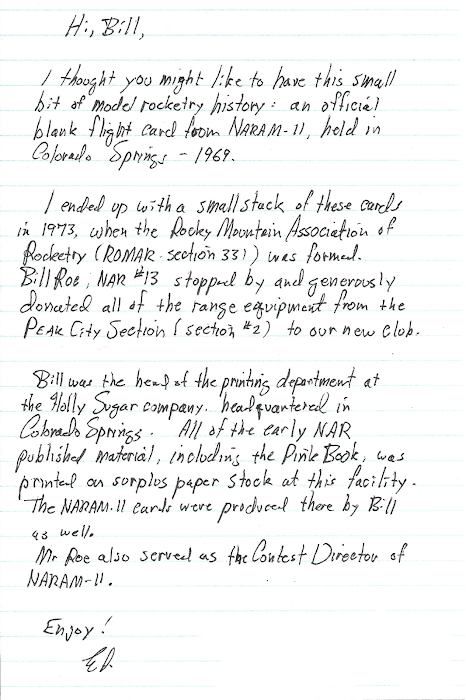 Hi, Bill,
I thought you might like to have this small
bit of model rocketry history: an official
blank flight card from NARAM-11, held in
Colorado Springs - 1969.
I ended up with a small stack of these cards
in 1973, when the Rocky Mountain Association of
Rocketry (ROMAR - section 331) was formed.
Bill Roe, NAR #13 stopped by and generously
donated all of the range equipment from the
PEAK City Section (section #2) to our new club.
Bill was the head of the printing department at
the Holly Sugar company, headquartered in
Colorado Springs. All of the early NAR
published material, including the Pink Book, was
printed on surplus paper stock at this facility.
The NARAM-11 cards were produced there by Bill
as well.
Mr Roe also served as the Contest Director of
NARAM-11.
Enjoy!
Ed.